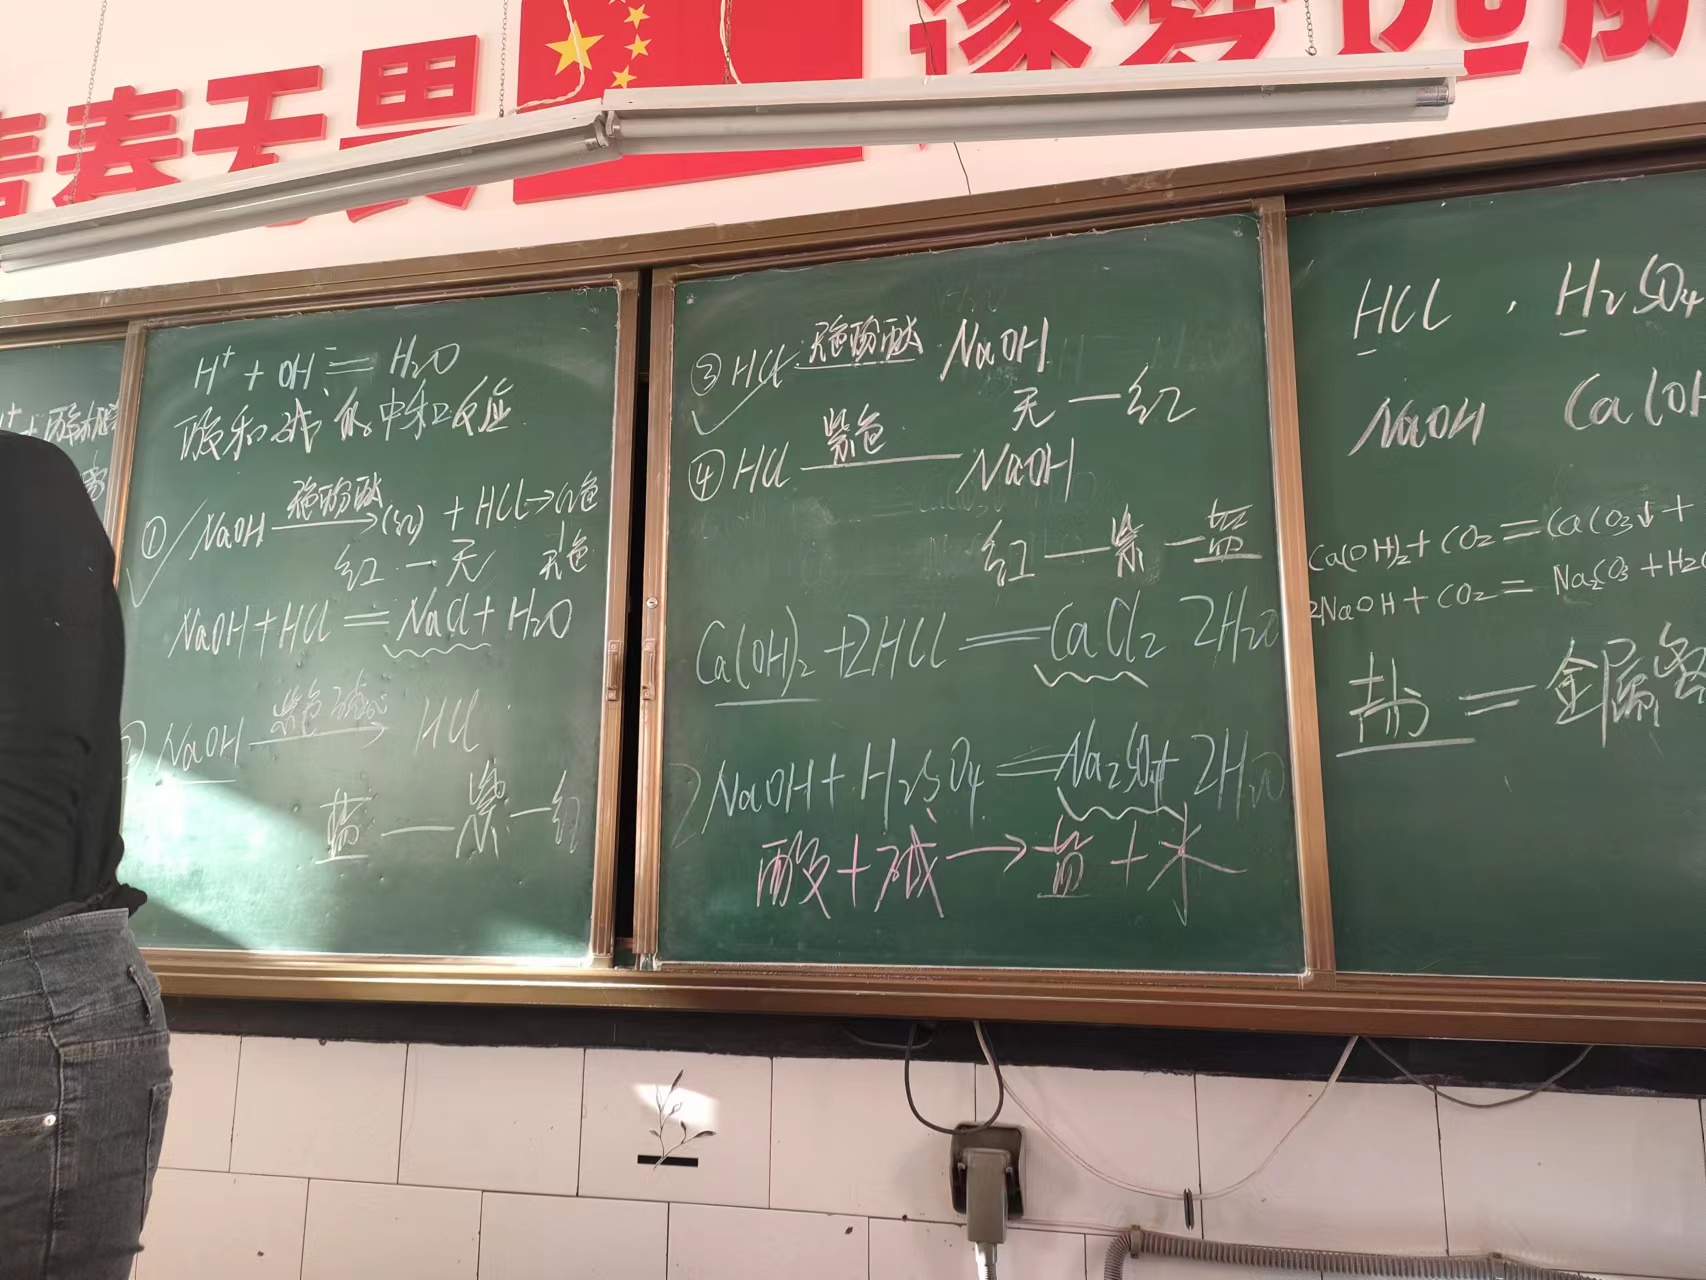 青春无畏
逐梦
H⁺ + OH⁻ = H₂O
酸和碱的中和反应
① NaOH 无色酚酞→(红) + HCl→红色
红 — 无 无色
NaOH + HCl = NaCl + H₂O
NaOH 紫色 HCl
蓝 — 紫 — 红
③ HCl 无色酚酞 NaOH
无 — 红
④ HCl 紫色 NaOH
红 — 紫 — 蓝
Ca(OH)₂ + 2HCl = CaCl₂ 2H₂O
2NaOH + H₂SO₄ = Na₂SO₄ + 2H₂O
酸 + 碱 → 盐 + 水
HCl . H₂SO₄
NaOH Ca(OH
Ca(OH)₂ + CO₂ = CaCO₃↓ +
2NaOH + CO₂ = Na₂CO₃ + H₂O
盐 = 金属